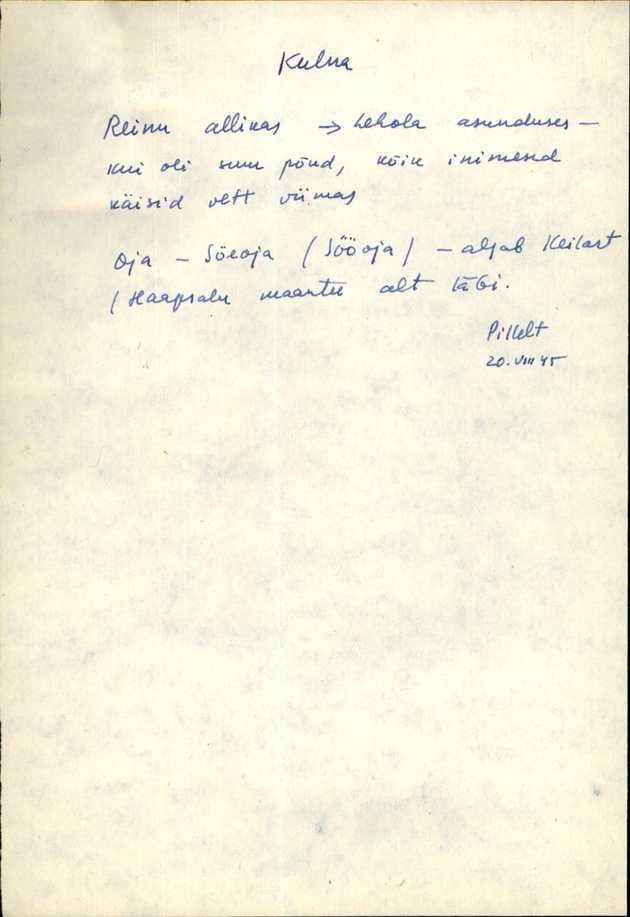 Kulna
Reinu allikas → Lehola asunduses –
kui oli suur põud, kõik inimesed
käisid vett viimas
Oja – Sõeoja (Sõõoja) – algab Keilast
(Haapsalu maantee alt läbi.
Pikkelt
20. VIII 45